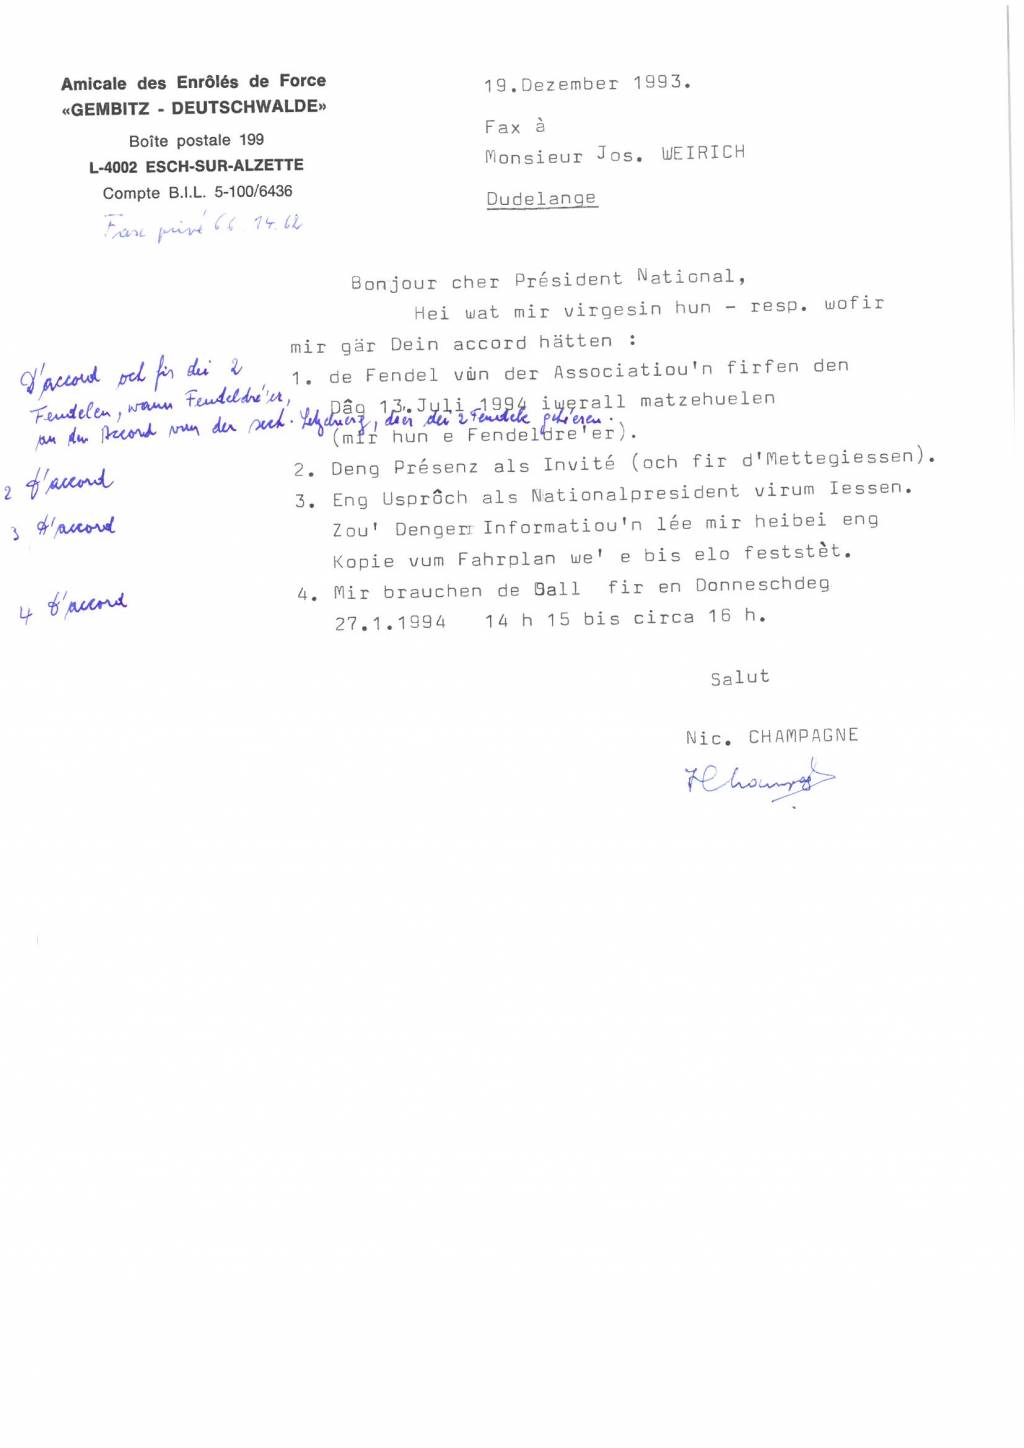 Amicale des Enrôlés de Force
«GEMBITZ - DEUTSCHWALDE»
Boîte postale 199
L-4002 ESCH-SUR-ALZETTE
Compte B.I.L. 5-100/6436
Fax privé 66.14.62
19.Dezember 1993.
Fax à
Monsieur Jos. WEIRICH
Dudelange
Bonjour cher Président National,
Hei wat mir virgesin hun - resp. wofir
mir gär Dein accord hätten :
1. de Fendel vun der Associatiou'n firfen den
Dâg 13.Juli 1994 iwerall matzehuelen
(mir hun e Fendeldre'er).
D'accord och fir déi 2
Fendelen, wann Fendeldré'er,
an den Accord vun der sect. , deer déi 2 Fendele gehéieren.
2. Deng Présenz als Invité (och fir d'Mettegiessen).
2 d'accord
3. Eng Usprôch als Nationalpresident virum Iessen.
3 d'accord
Zou' Denger Informatiou'n lée mir heibei eng
Kopie vum Fahrplan we' e bis elo feststèt.
4. Mir brauchen de Sall fir en Donneschdeg
4 d'accord
27.1.1994 14 h 15 bis circa 16 h.
Salut
Nic. CHAMPAGNE